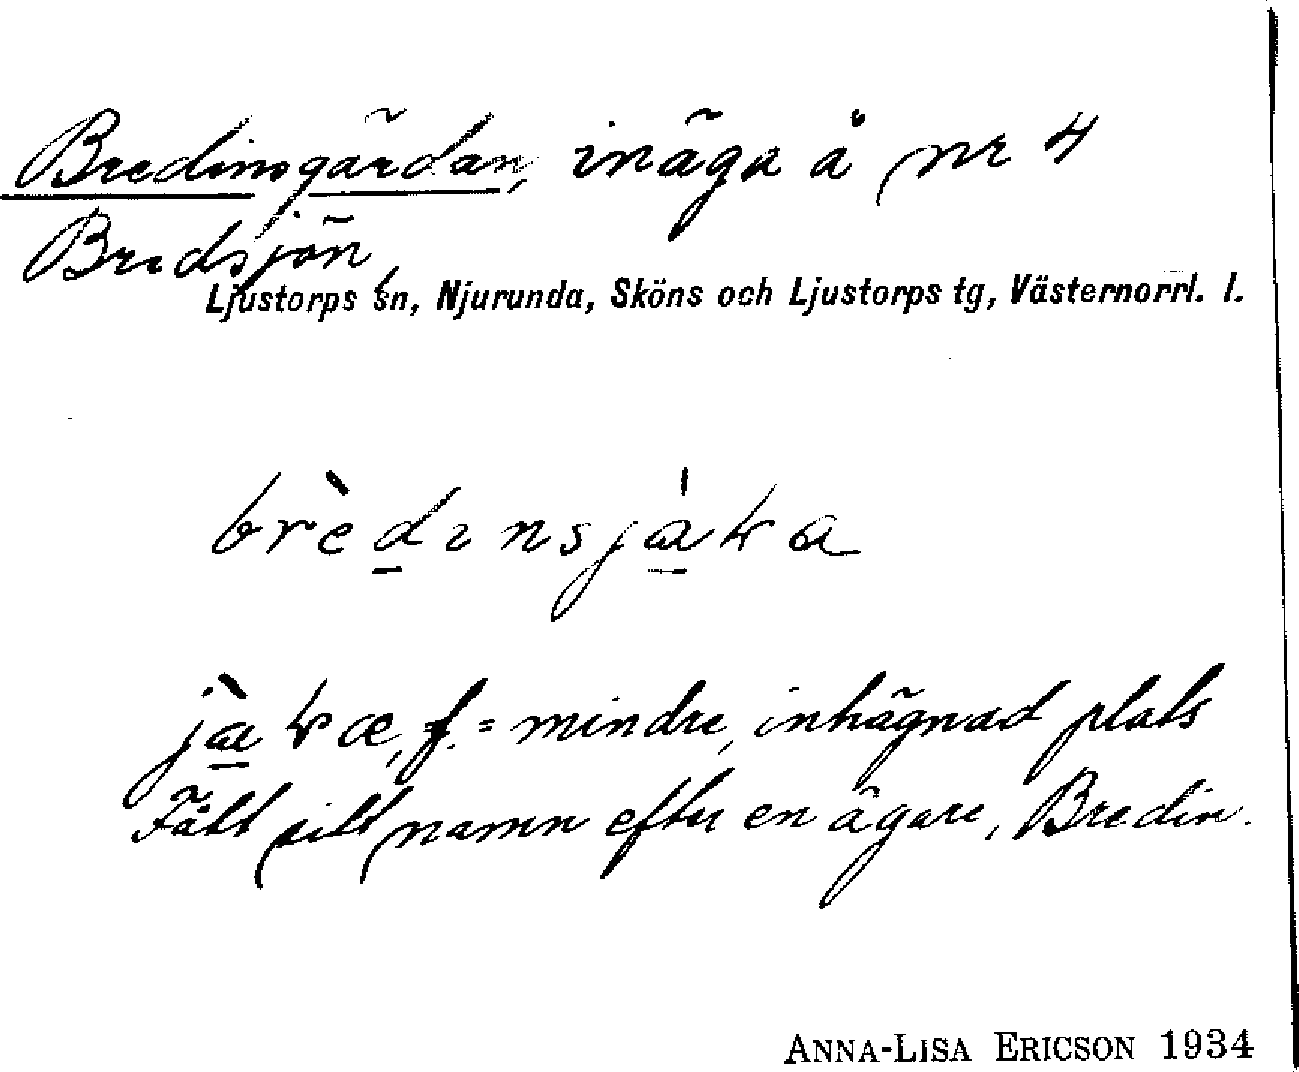 Bredinsgärdan, inäga å nr 4
Bredsjön,
Ljustorps sn, Njurunda, Sköns och Ljustorps tg, Västernorrl. l.
jæ̀ꞎæ, f. = mindre, inhägnad plats
Fält sitt namn efter en ägare, Bredin.
ANNA-LISA ERICSON 1934